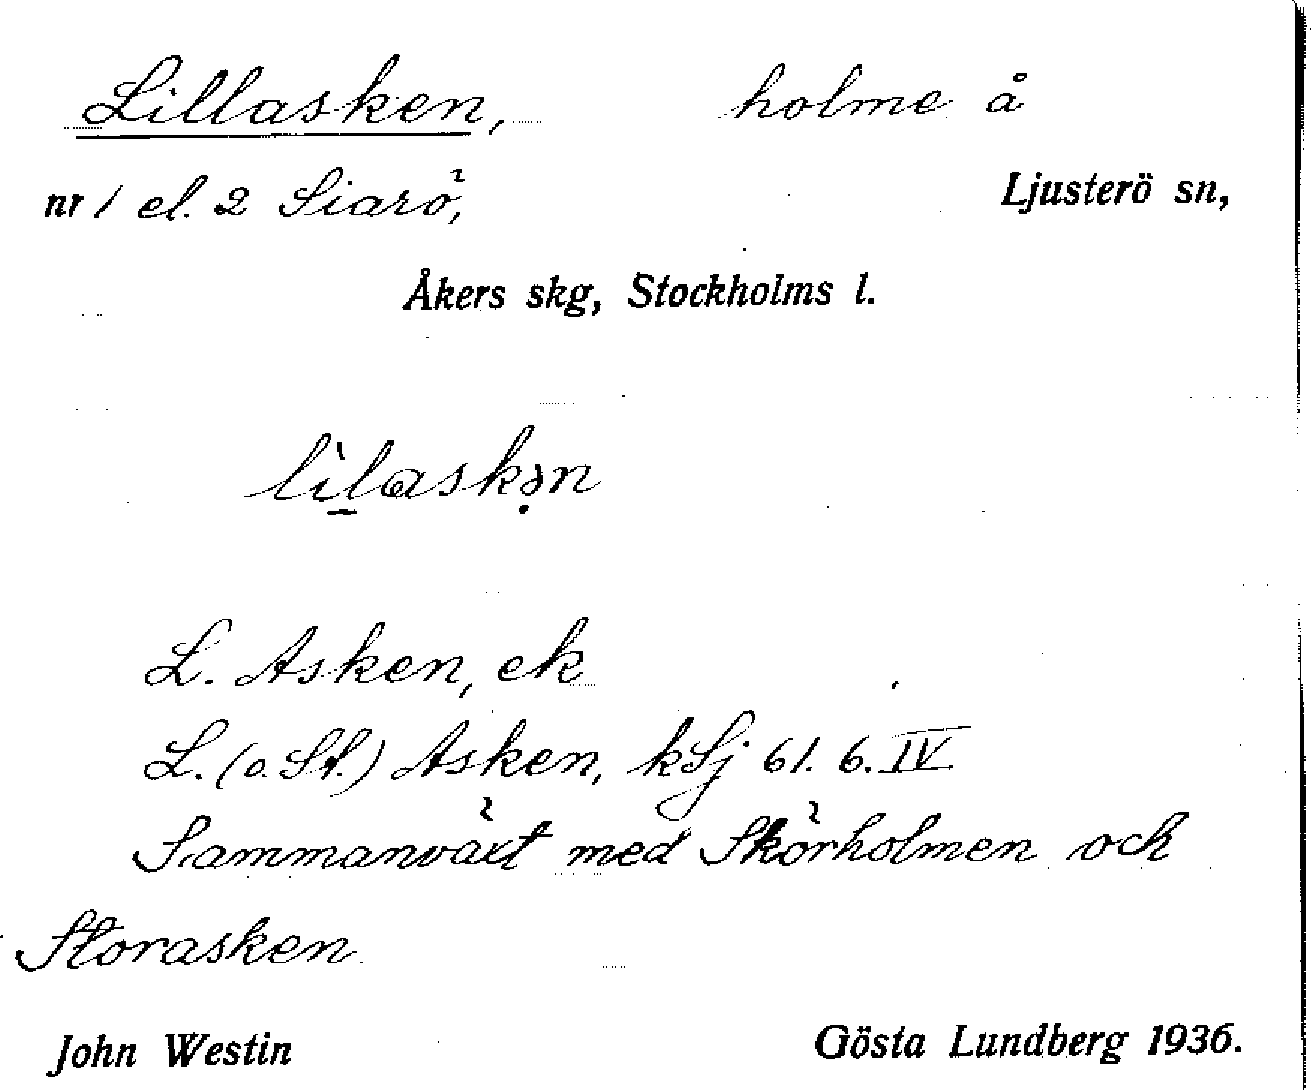 Lillasken, holme å
nr 1 el. 2 Siarö, Ljusterö sn,
Åkers skg, Stockholms l.
L. Asken, ek
L. (o. St.) Asken, kSj 61. 6. IV
Sammanväxt med Skörholmen och
Storasken
John Westin Gösta Lundberg 1936.